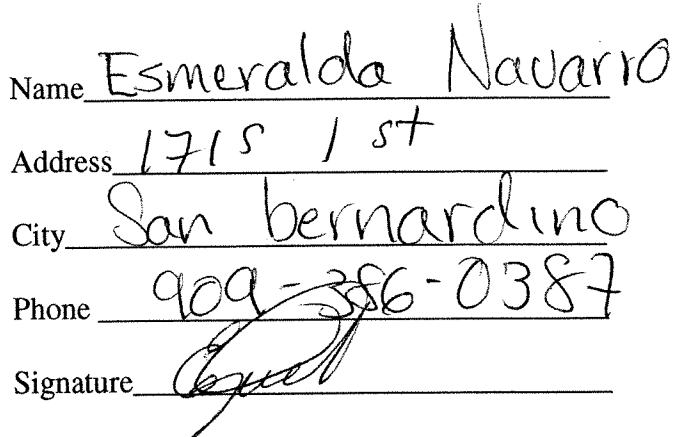 Name Esmeralda Navarro
Address 1715 1 st
City San bernardino
Phone 909-386-0387
Signature